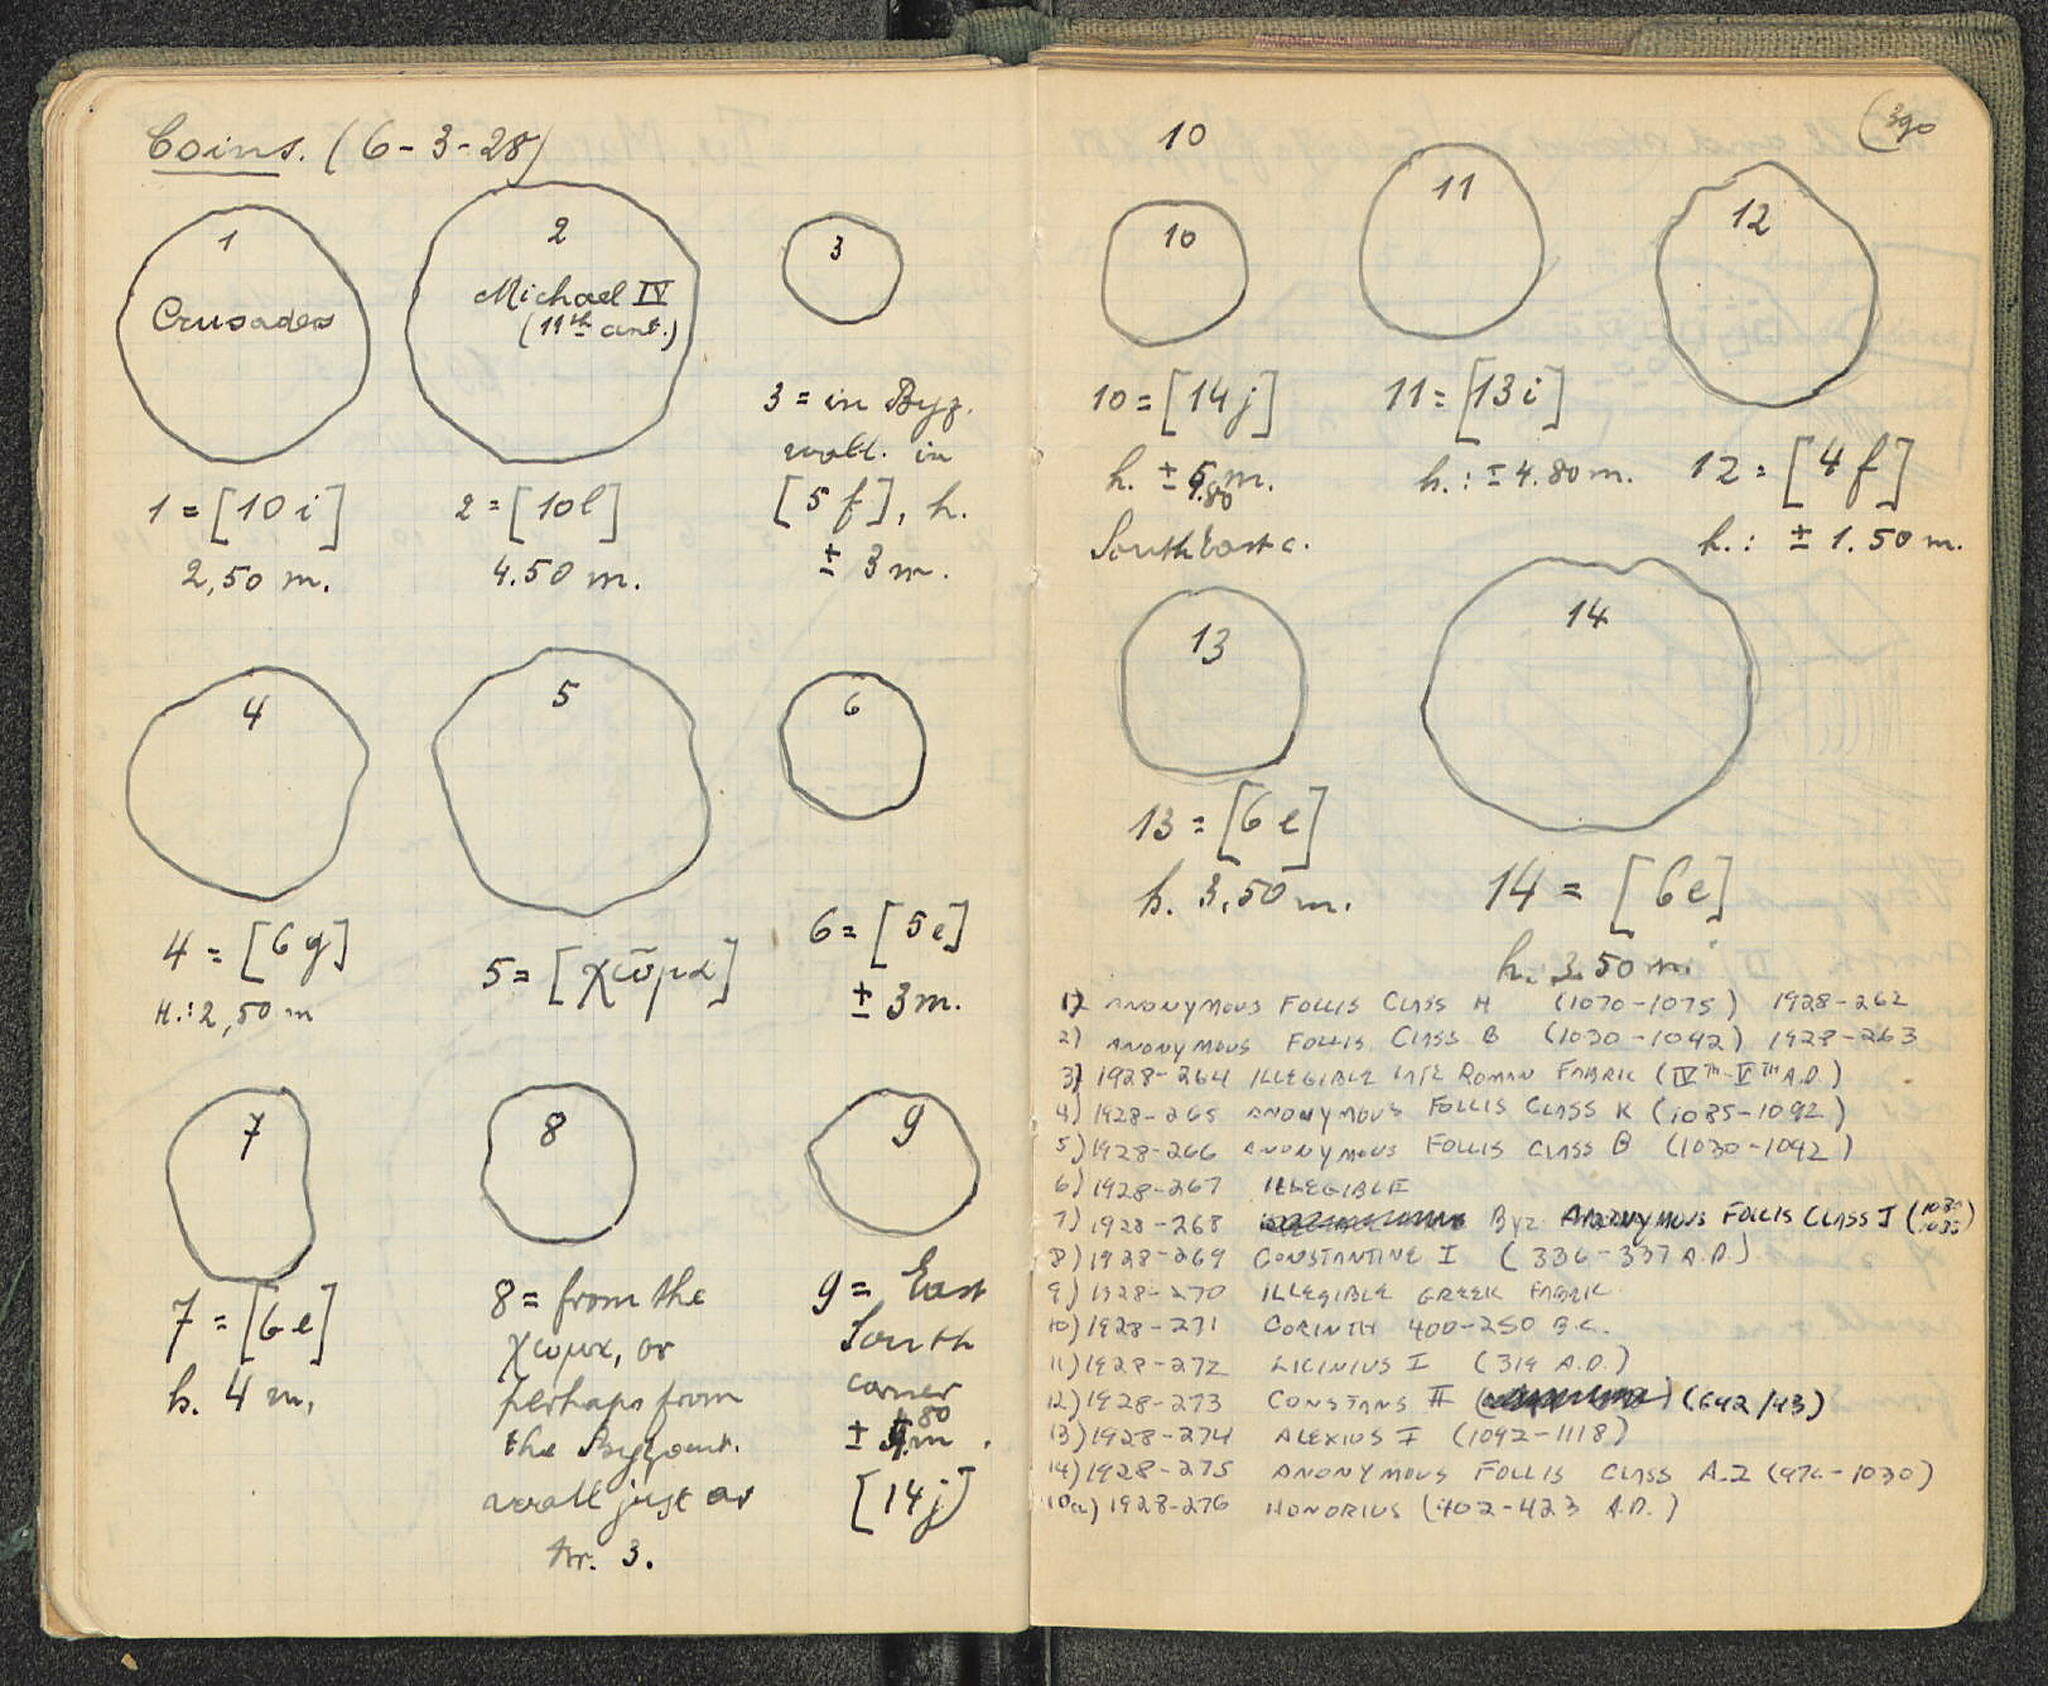 Coins. (6-3-28)
1
Crusades
1 = [10 i]
2,50 m.
2
Michael IV
(11th cent.)
2 = [10 l]
4.50 m.
3
3 = in Byz.
wall. in
[5 f], h.
± 3 m.
4
4 = [6 g]
H.: 2,50 m
5
5 = [χῶμα]
6
6 = [5 e]
± 3 m.
7
7 = [6 e]
h. 4 m.
8
8 = from the
χωμα, or
perhaps from
the Byzant.
wall just as
nr. 3.
9
9 = East
South
corner
± 4.80 m.
[14 j]
390
10
10
10 = [14 j]
h. ± 4.80 m.
South East c.
11
11 = [13 i]
h.: ± 4.80 m.
12
12 = [4 f]
h.: ± 1.50 m.
13
13 = [6 e]
h. 3,50 m.
14
14 = [6 e]
h. 3.50 m.
1) ANONYMOUS FOLLIS CLASS H (1070-1075) 1928-262
2) ANONYMOUS FOLLIS CLASS B (1030-1042) 1928-263
3) 1928-264 ILLEGIBLE LATE ROMAN FABRIC (IVTH-VTH A.D.)
4) 1928-265 ANONYMOUS FOLLIS CLASS K (1085-1092)
5) 1928-266 ANONYMOUS FOLLIS CLASS B (1030-1042)
6) 1928-267 ILLEGIBLE
7) 1928-268 Byz ANONYMOUS FOLLIS CLASS I (1080 1085)
8) 1928-269 CONSTANTINE I (336-337 A.D.)
9) 1928-270 ILLEGIBLE GREEK FABRIC
10) 1928-271 CORINTH 400-250 B.C.
11) 1928-272 LICINIUS I (319 A.D.)
12) 1928-273 CONSTANS II (642/43)
13) 1928-274 ALEXIUS I (1092-1118)
14) 1928-275 ANONYMOUS FOLLIS CLASS A-2 (976-1030)
10a) 1928-276 HONORIUS (402-423 A.D.)